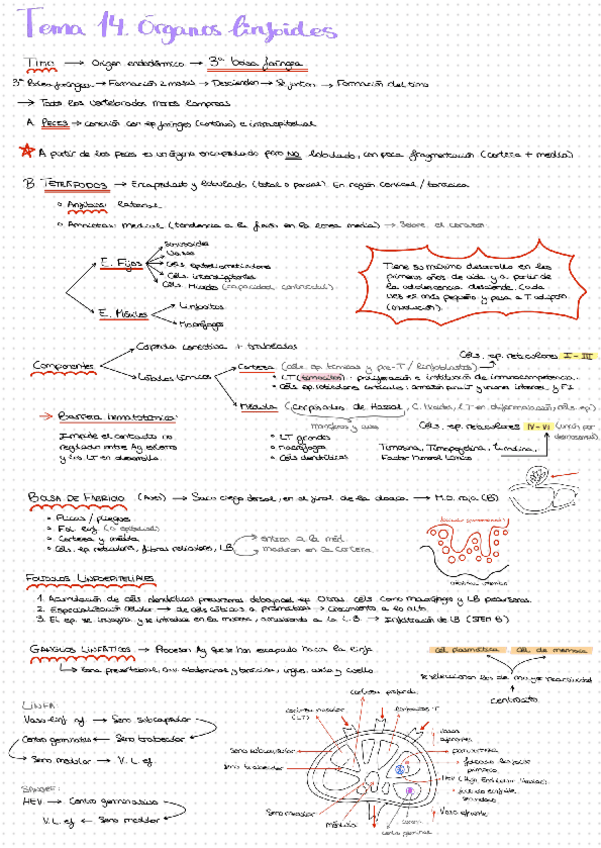 Tema 14. Órganos linfoides
TIMO → Origen endodérmico → 3ª bolsa faríngea
3ª Bolsa faríngea → Formación 2 masas → Descienden → Se juntan → Formación del timo
→ Todos los vertebrados menos lampreas
A. PECES → conexión con ep. faríngeo (continuo) e intraepitelial
A partir de los peces es un órgano encapsulado pero NO lobulado, con poca fragmentación (corteza + médula)
B. TETRÁPODOS → Encapsulado y lobulado (total o parcial). En región cervical / torácica
Anfibios: lateral
Amniotas: Medial (tendencia a la fusión en la línea media) → Sobre el corazón
E. Fijos
Sinusoides
Vasos
Céls epiteliorreticulares
Céls. interdigitantes
Céls. Mioides (capacidad contráctil)
E. Móviles
Linfocitos
Macrófagos
Tiene su máximo desarrollo en los
primeros años de vida y a partir de
la adolescencia desciende. Cada
vez es más pequeño y pasa a T. adiposo
(involución).
Componentes
Cápsula conectiva + trabéculas
Lóbulos tímicos
Corteza (céls. ep. tímicas y pre-T / linfoblastos)
Céls. ep. reticulares I - III
LT (timocitos): proliferación e instrucción de inmunocompetencia.
Médula (Corpúsculos de Hassal, LT en diferenciación, céls. ep)
mamíferos y aves
LT grandes
macrófagos
Céls dendríticas
Céls. ep. reticulares IV - VI (unión por desmosomas)
Timosina, Timopoyetina, timulina,
Factor humoral tímico
Barrera hematotímica:
Impide el contacto no
regulado entre Ag externo
y los LT en desarrollo.
BOLSA DE FABRICIO (Aves) → Saco ciego dorsal, en el final de la cloaca. → M.O. roja (LB)
Plicas / pliegues
Fol. linf.
Corteza y médula
Céls. ep. reticulares, fibras reticulares, LB
entran a la méd.
maduran en la corteza.
FOLÍCULOS LINFOEPITELIALES
1. Acumulación de céls dendríticas precursoras debajo del ep. Otras céls como macrófagos y LB precursoras.
2. Especialización celular → de céls cúbicas a prismáticas → Crecimiento a lo alto
3. El ep. se invagina y se introduce en la mucosa, arrastrando a la L.B. → Infiltración de LB
GANGLIOS LINFÁTICOS → Procesan Ag que se han escapado hacia la linfa
Zona prevertebral, cav. abdominal y torácica, ingles, axila y cuello
cél. plasmática
cél. de memoria
se seleccionan los de mayor reactividad
centrocito
LINFA:
Vaso linf. af. → Seno subcapsular
Centro germinativo ← Seno trabecular
Seno medular → V. L. ef
SANGRE:
HEV → Centro germinativo
V. L. ef ← Seno medular
corteza profunda
(LT)
linfocitos T
vasos aferentes
Seno subcapsular
Seno trabecular
folículo linfoide primario
HEV
folículo linfoide secundario
Seno medular
Médula
Vaso eferente
centro germinal